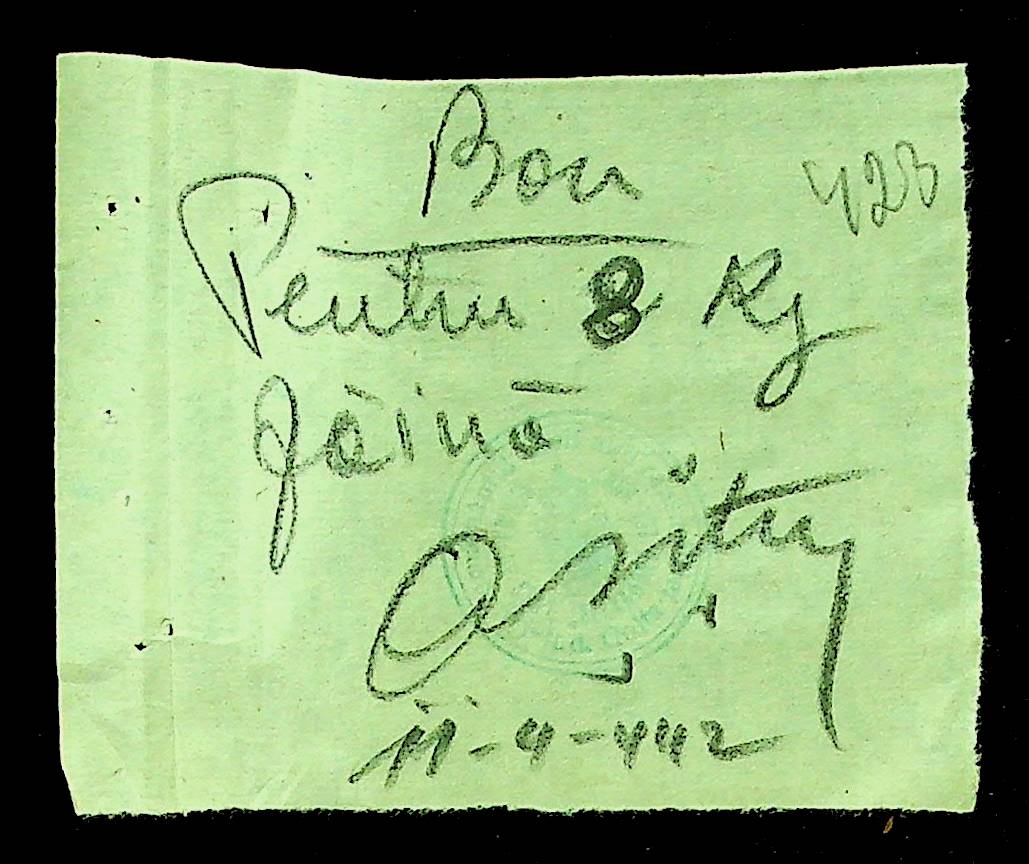 Bon
423
Pentru 8 Kg
făină
11-4-442